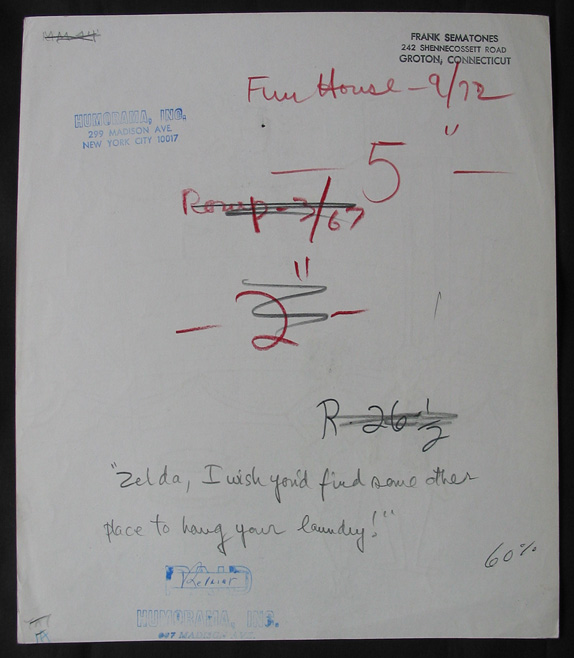 FRANK SEMATONES
242 SHENNECOSSETT ROAD
GROTON, CONNECTICUT
Fun House - 9/72
HUMORAMA, INC.
299 MADISON AVE.
NEW YORK CITY 10017
— 5" —
Romp - 3/67
— 2" —
R-26 1/2
"Zelda, I wish you'd find some other
place to hang your laundry!"
60%
PAID
HUMORAMA, INC.
MADISON AVE.